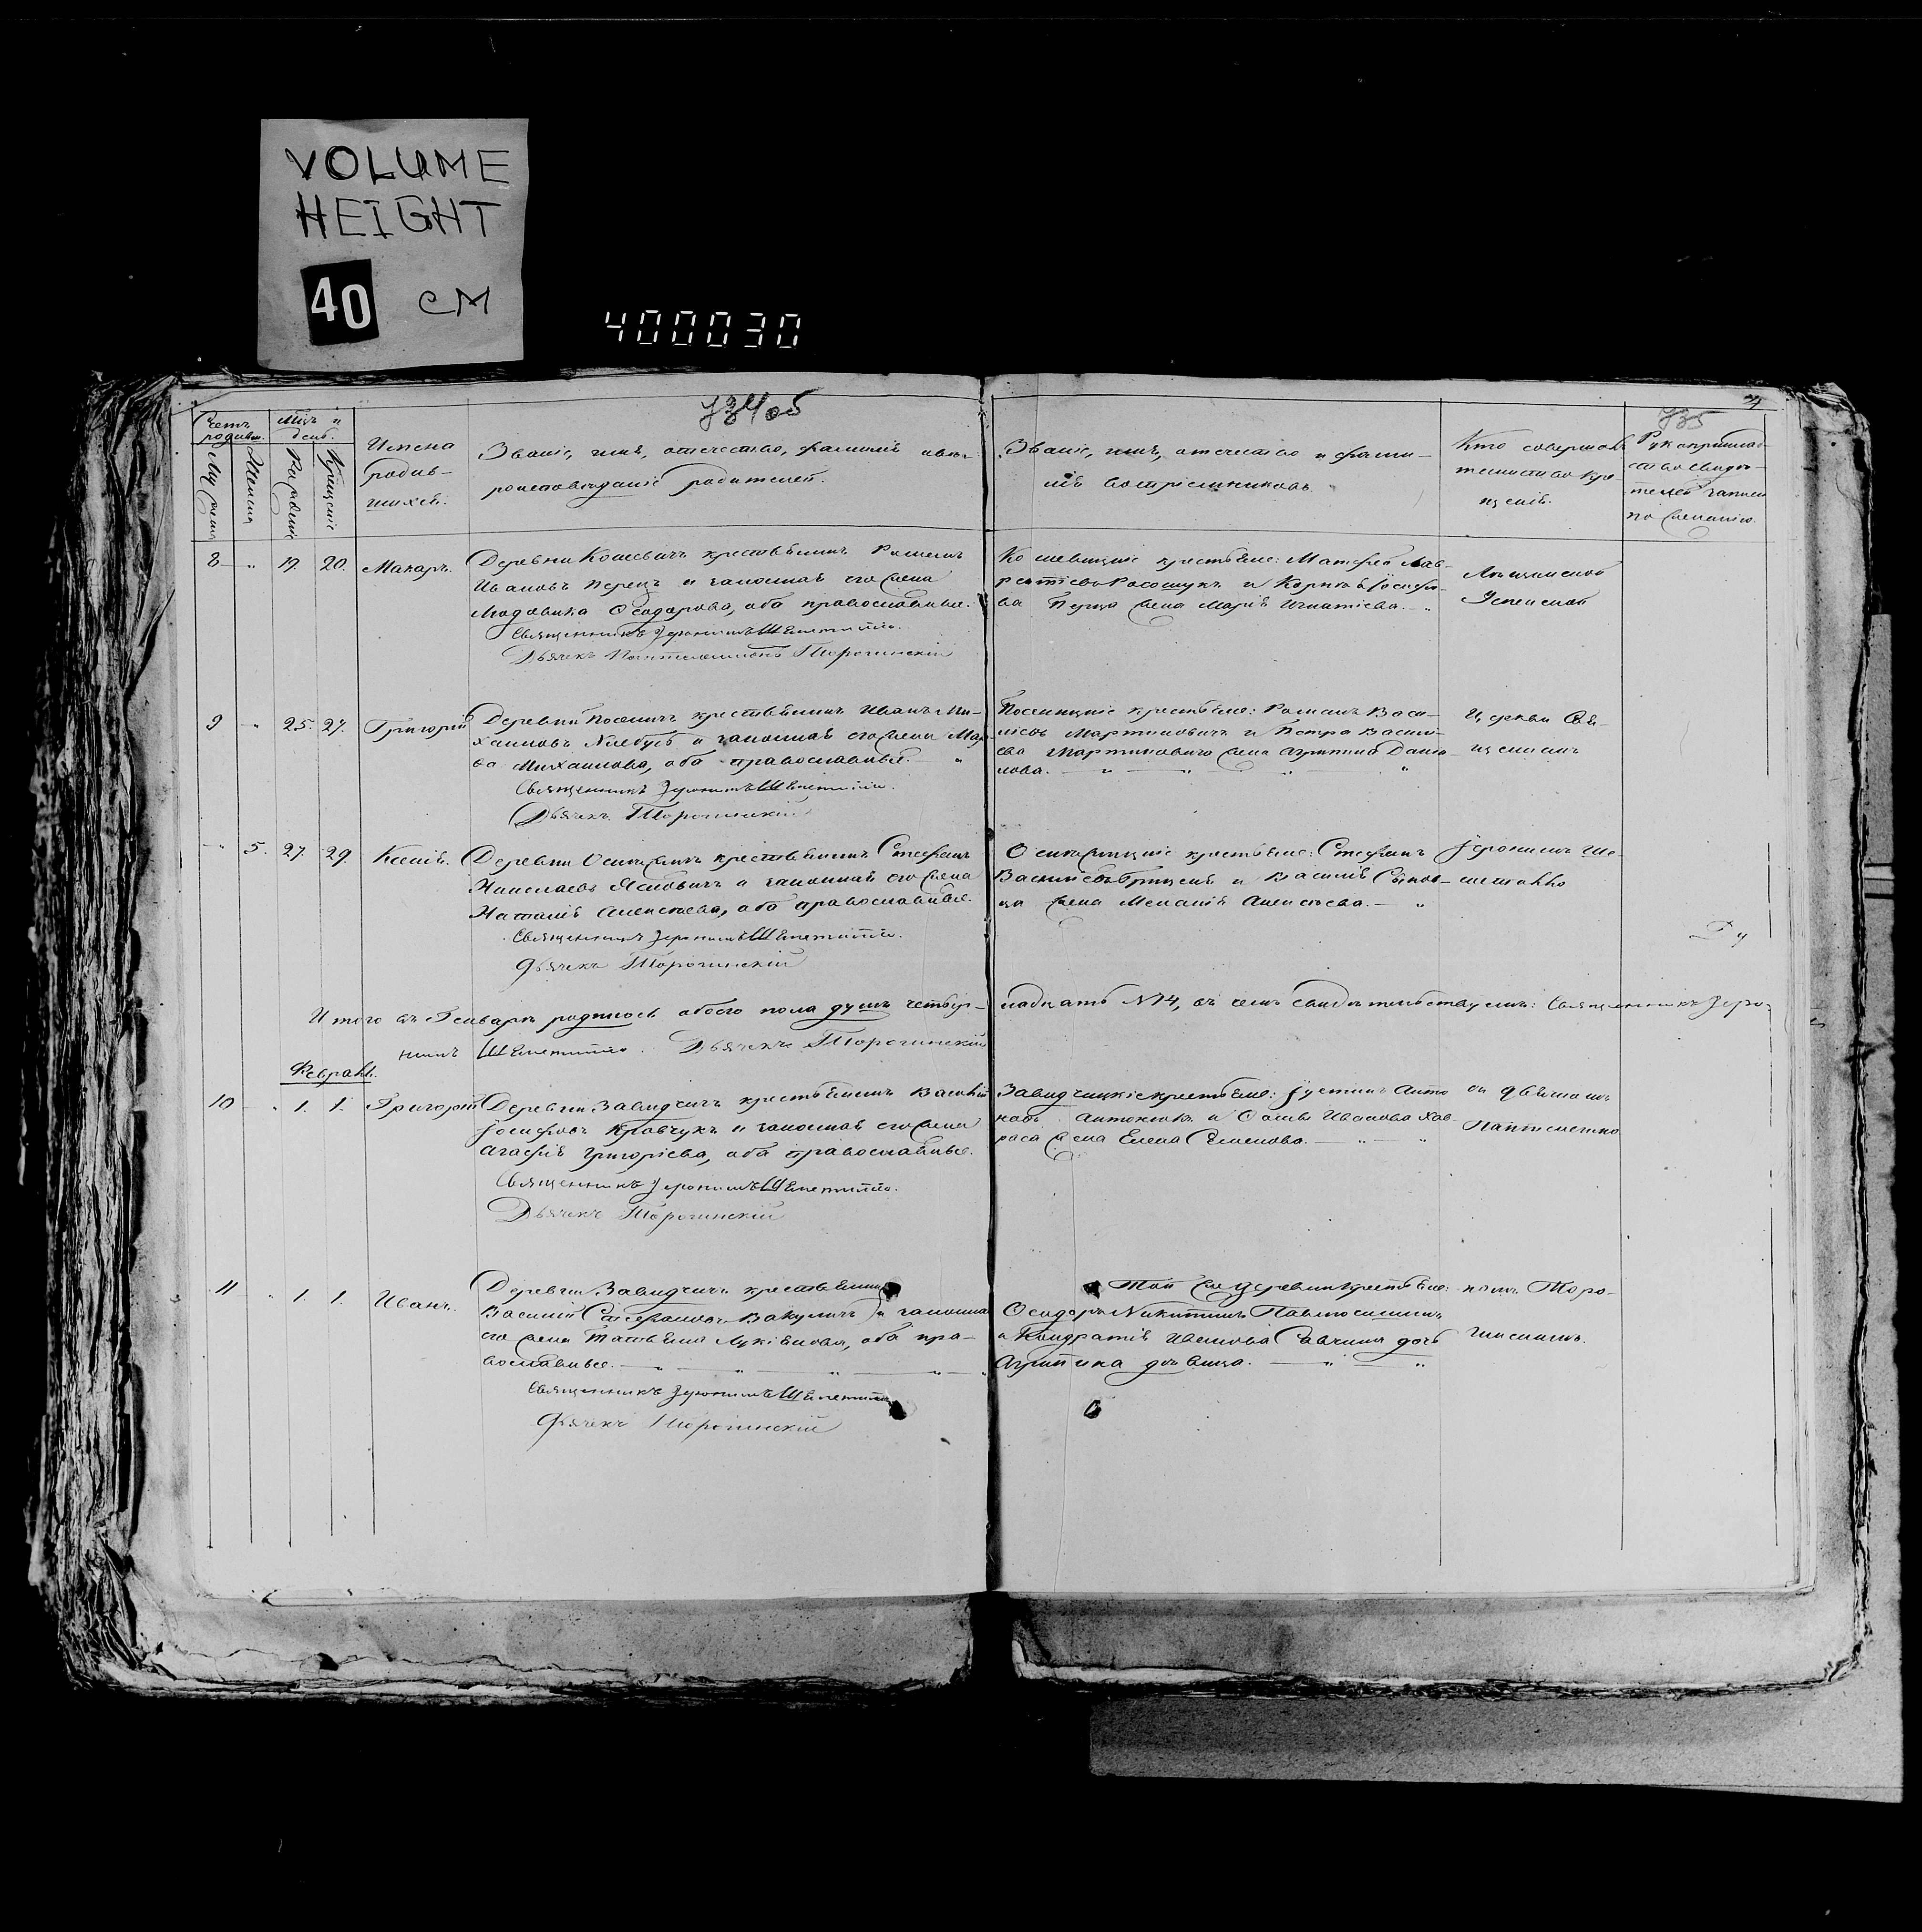 VOLUME
HEIGHT
40 CM
400030
734об
735
Счетъ родивш.
Мужеска
Женска
Мѣц. и день.
Рожденіе
Крещеніе
Имена
родив-
шихся.
Званіе, имя, отечество, фамилія и вѣро-
роисповѣданіе родителей.
Званіе, имя, отечество и фами-
лія воспріемниковъ
Кто совершалъ
таинство кре-
щенія.
Рукоприклад-
ство свидѣ-
телей записи
по желанію.
8 " 19. 20. Макаръ.
Деревни Кошевичъ крестьянинъ Романъ
Ивановъ Перецъ и законная его жена
Модовика Ѳеодорова, оба православные.
Священникъ Іеронимъ Шеметилло.
Дьячекъ Пантелеимонъ Торогинскій
Кошевицкіе крестьяне: Матфей Лав-
рентіевъ Рассошукъ и Карпа Іосифо-
ва Перца жена Марія Игнатіева. "
Успенской
9 " 25. 27. Григорій
Деревни Посеничъ крестьянинъ Иванъ Ми-
хаиловъ и законная его жена Мар-
ѳа Михаилова, оба православные. "
Священникъ Іеронимъ Шеметилло.
Дьячекъ Торогинскій
Посеницкіе крестьяне: Романъ Васи-
ліевъ Мартиновичъ и Петра Василі-
ева Мартиновича жена Агрипина Дани-
лова. " " " "
Церкви Свя-
щенникъ
" 5. 27. 29. Ксенія.
Деревни крестьянинъ Стефанъ
Николаевъ Ясковичъ и законная его жена
Наталія Алексѣева, оба православные.
Священникъ Іеронимъ Шеметилло.
Дьячекъ Торогинскій
крестьяне: Стефанъ
Василіевъ и Василія
жена Меланія Алексѣева. "
Іеронимъ Ше-
метилло
Итого въ Генварѣ родилось обоего пола душъ четыр-
надцать №14, въ чемъ свидѣтельствуемъ: Священникъ Іеро-
нимъ Шеметилло. Дьячекъ Торогинскій
Февраль.
10 " 1. 1. Григорій
Деревни Завидчичъ крестьянинъ Василій
Іосифовъ Кравчукъ и законная его жена
Агафія Григоріева, оба православные.
Священникъ Іеронимъ Шеметилло.
Дьячекъ Торогинскій
Завидчицкіе крестьяне: Іустинъ Анто-
новъ и Саввы Иванова Хав-
раса жена Елена Семенова. " "
съ дьячкомъ
Пантелеимо-
11 " 1. 1. Иванъ.
Деревни Завидчичъ крестьянинъ
Василій Стефановъ Вакуличъ и законная
его жена Татьяна Лукіянова, оба пра-
вославные. " " " "
Священникъ Іеронимъ Шеметилло
Дьячекъ Торогинскій
Той же деревни крестьяне:
Ѳеодоръ Никитинъ
и Кондратія Иванова дочь
Агрипина дѣвица. " "
номъ Торо-
гинскимъ.